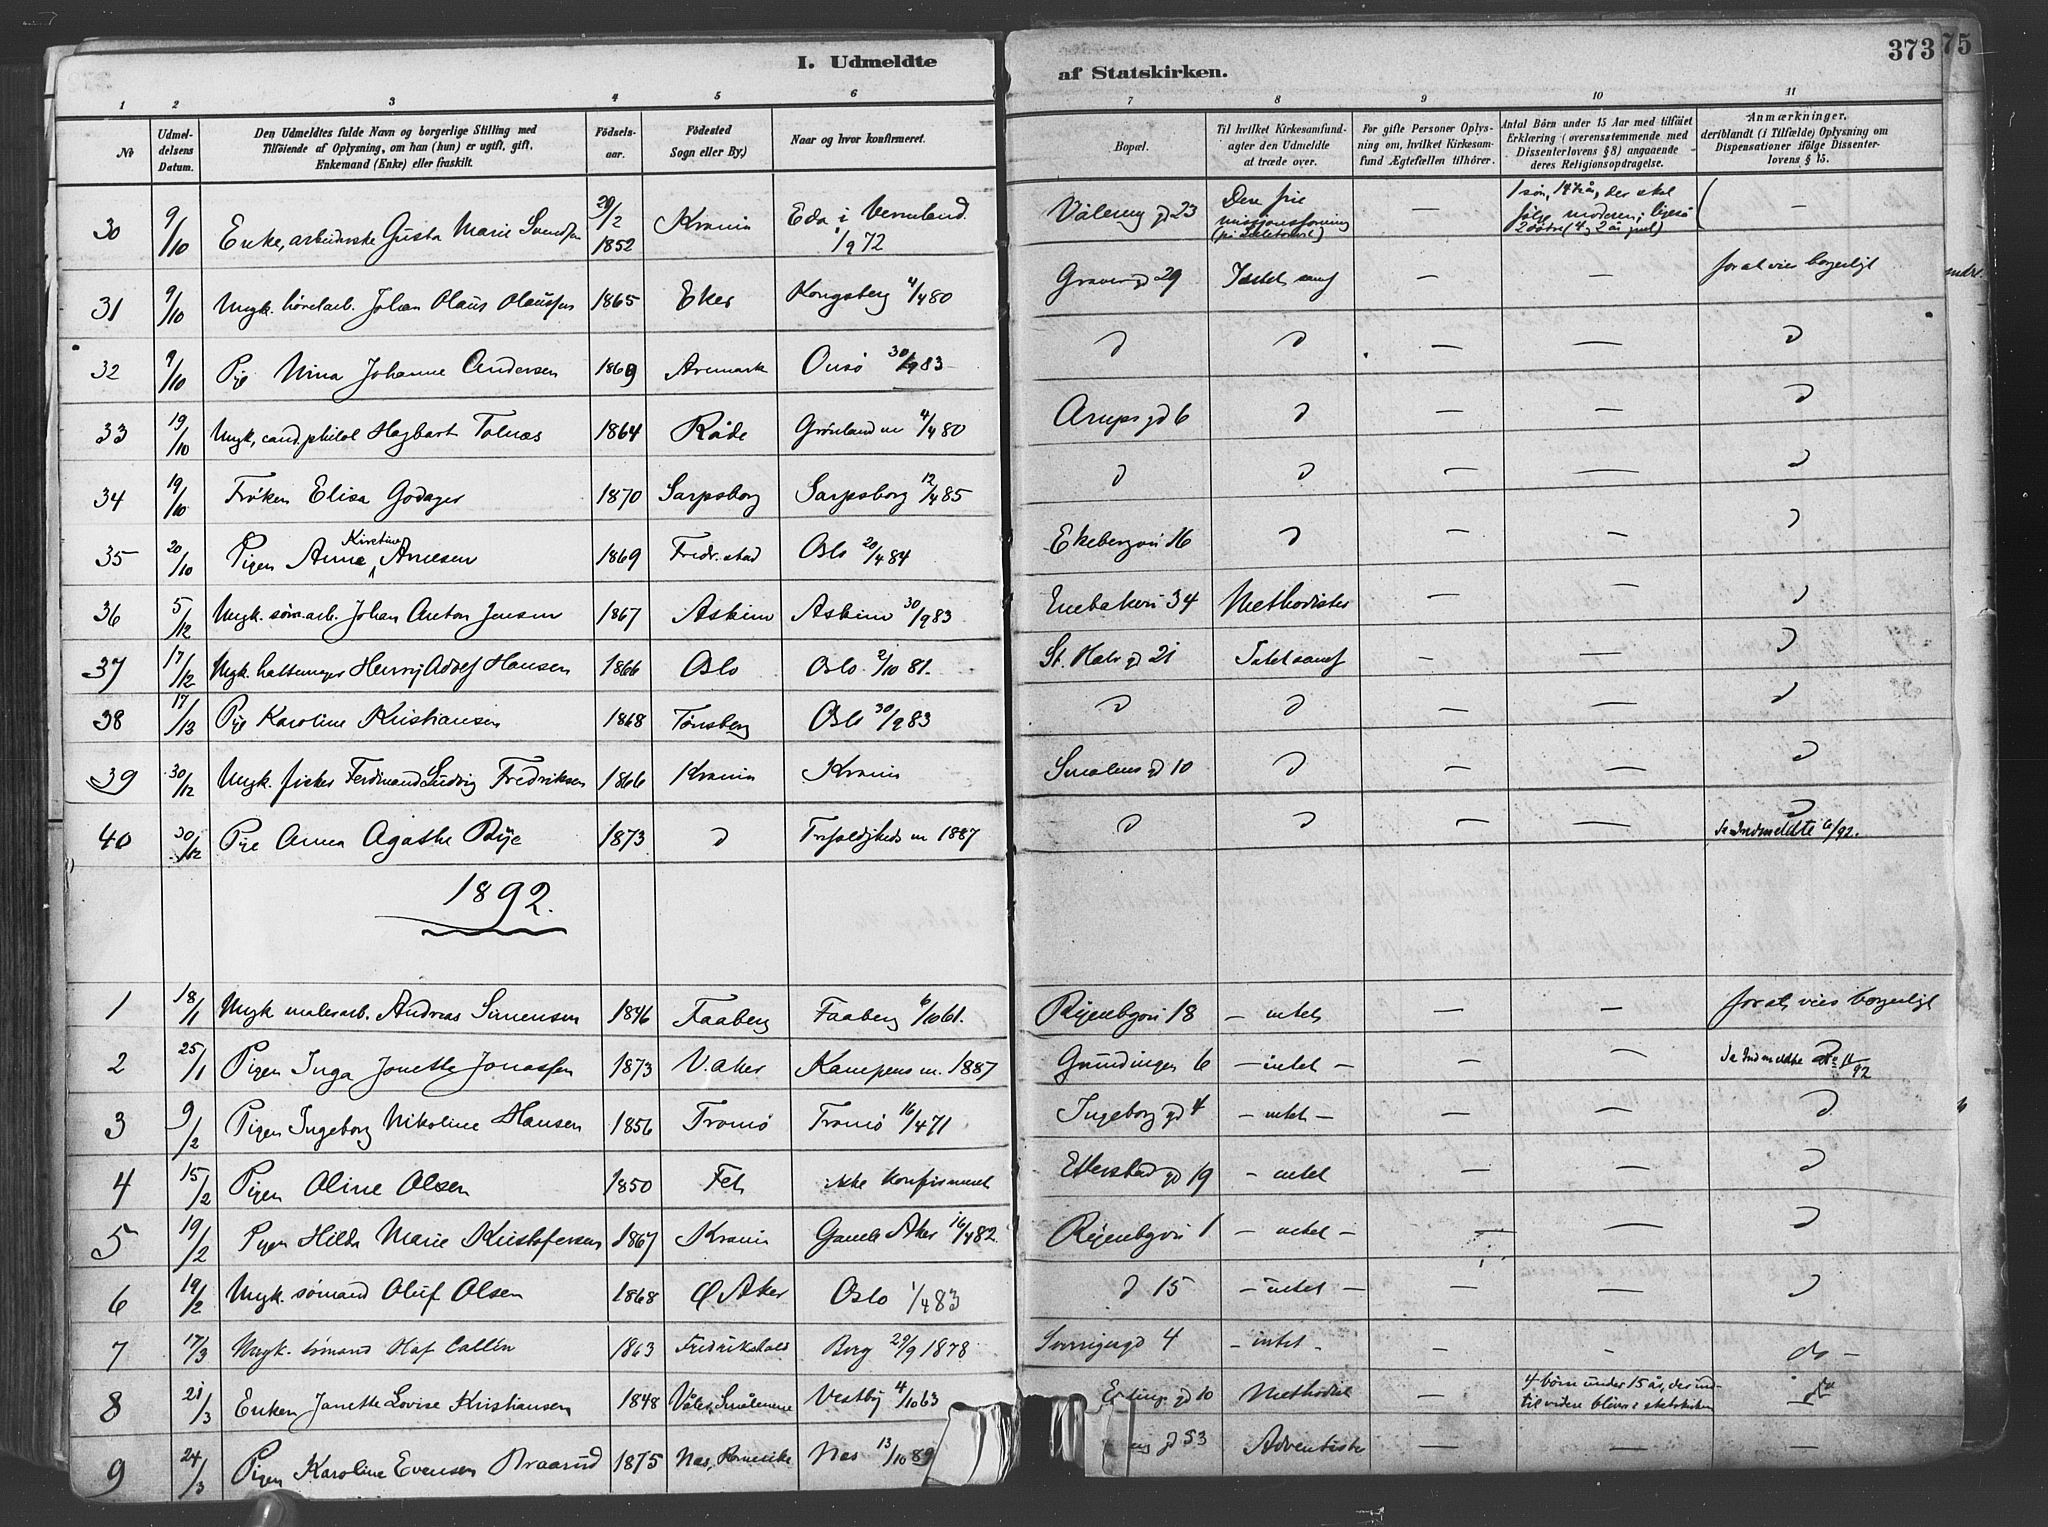 I. Udmeldte
af Statskirken.
373
75
1 2 3 4 5 6 7 8 9 10 11
No
Udmel-
delsens
Datum.
Den Udmeldtes fulde Navn og borgerlige Stilling med
Tilføiende af Oplysning, om han (hun) er ugift, gift,
Enkemand (Enke) eller fraskilt.
Fødsels-
aar.
Fødested
Sogn eller By.)
Naar og hvor konfirmeret.
Bopæl.
Til hvilket Kirkesamfund-
agter den Udmeldte
at træde over.
For gifte Personer Oplys-
ning om, hvilket Kirkesam-
fund Ægtefællen tilhører.
Antal Börn under 15 Aar med tilföiet
Erklæring (overensstemmende med
Dissenterlovens § 8) angaaende
deres Religionsopdragelse.
Anmærkninger,
deriblandt (i Tilfælde) Oplysning om
Dispensationer ifölge Dissenter-
lovens § 15.
30 9/10 Enke, arbeiderske Gusta Marie Svendsen 29/2 1852 Krania Eda i Vermland 1/9 72 Vålereng gd 23 Den frie missionsforening 1 søn, 14½ år, der skal følge moderen; ligeså 2 døtre (4 og 2 år gml) –
31 9/10 Ungk. høvelarb. Johan Olaus Olaussen 1865 Eker Kongsberg 4/4 80 Graver gd 29 Intet samf — — for at vies borgerligt
32 9/10 Pige Nina Johanne Andersen 1869 Aremark Onsø 30/9 83 d d — — d
33 19/10 Ungk, cand. philol Hagbart Tolnæs 1864 Råde Grønland m 4/4 80 Arups gd 6 d — — d
34 19/10 Frøken Elisa Godager 1870 Sarpsborg Sarpsborg 12/4 85 d d — — d
35 20/10 Pigen Anna Kirstine Arnesen 1869 Fredr. stad Oslo 20/4 84 Ekebergvei 16 d — — d
36 5/12 Ungk. sømarb. Johan Anton Jensen 1867 Askim Askim 30/9 83 Enebakvei 34 Methodister — — d
37 17/12 Ungk. hattemager Henrij Adolf Hansen 1866 Oslo Oslo 2/10 81. St. Halv gd 21 Intet samf – — d
38 17/12 Pige Karoline Kristiansen 1868 Tønsberg Oslo 30/9 83 d d — — d
39 30/12 Ungk. fisker Ferdinand Ludvig Fredriksen 1866 Krania Krania Smålens gd 10 d — — d
40 30/12 Pige Anna Agathe Bye 1873 d Trefoldigheds m 1887 d d — — d
Se Indmeldte 6/92.
1892.
1 18/1 Ungk malerarb. Andreas Simensen 1846 Faaberg Faaberg 6/10 61. Ryenbgvei 18 – intet — — for at vies borgerligt
2 25/1 Pigen Inga Jonette Jonassen 1873 V. Aker Kampens m. 1887 Grundingen 6 – intet – — — d
Se Indmeldte 11/92
3 9/2 Pigen Ingeborg Nikoline Hansen 1856 Tromsø Tromsø 16/4 71 Ingeborg gd 4 – intet – — — d
4 15/2 Pigen Oline Olsen 1850 Fet ikke konfirmeret Etterstad gd 19 – intet — — d
5 19/2 Pigen Hilda Marie Kristofersen 1867 Krania Gamle Aker 16/4 82. Ryenbgvei 1 – intet – — — d
6 19/2 Ungk. sømand Oluf Olsen 1868 Ø Aker Oslo 1/4 83 d 15 – intet – — — d
7 17/3 Ungk. sømand Olaf Callin 1863 Fredrikshald Berg 29/9 1878 Sverigesgd 4 – intet – — - do –
8 21/3 Enken Janette Lovise Kristiansen 1848 Våler, Smålenene Vestby 4/10 63 gd 10 Methodist — 4 børn under 15 år, der ind-
til videre blive i statskirken
9 24/3 Pigen Karoline Evensen Braarud 1875 Nes, Romerike Nes 13/10 89 gd 53 Adventister — — —